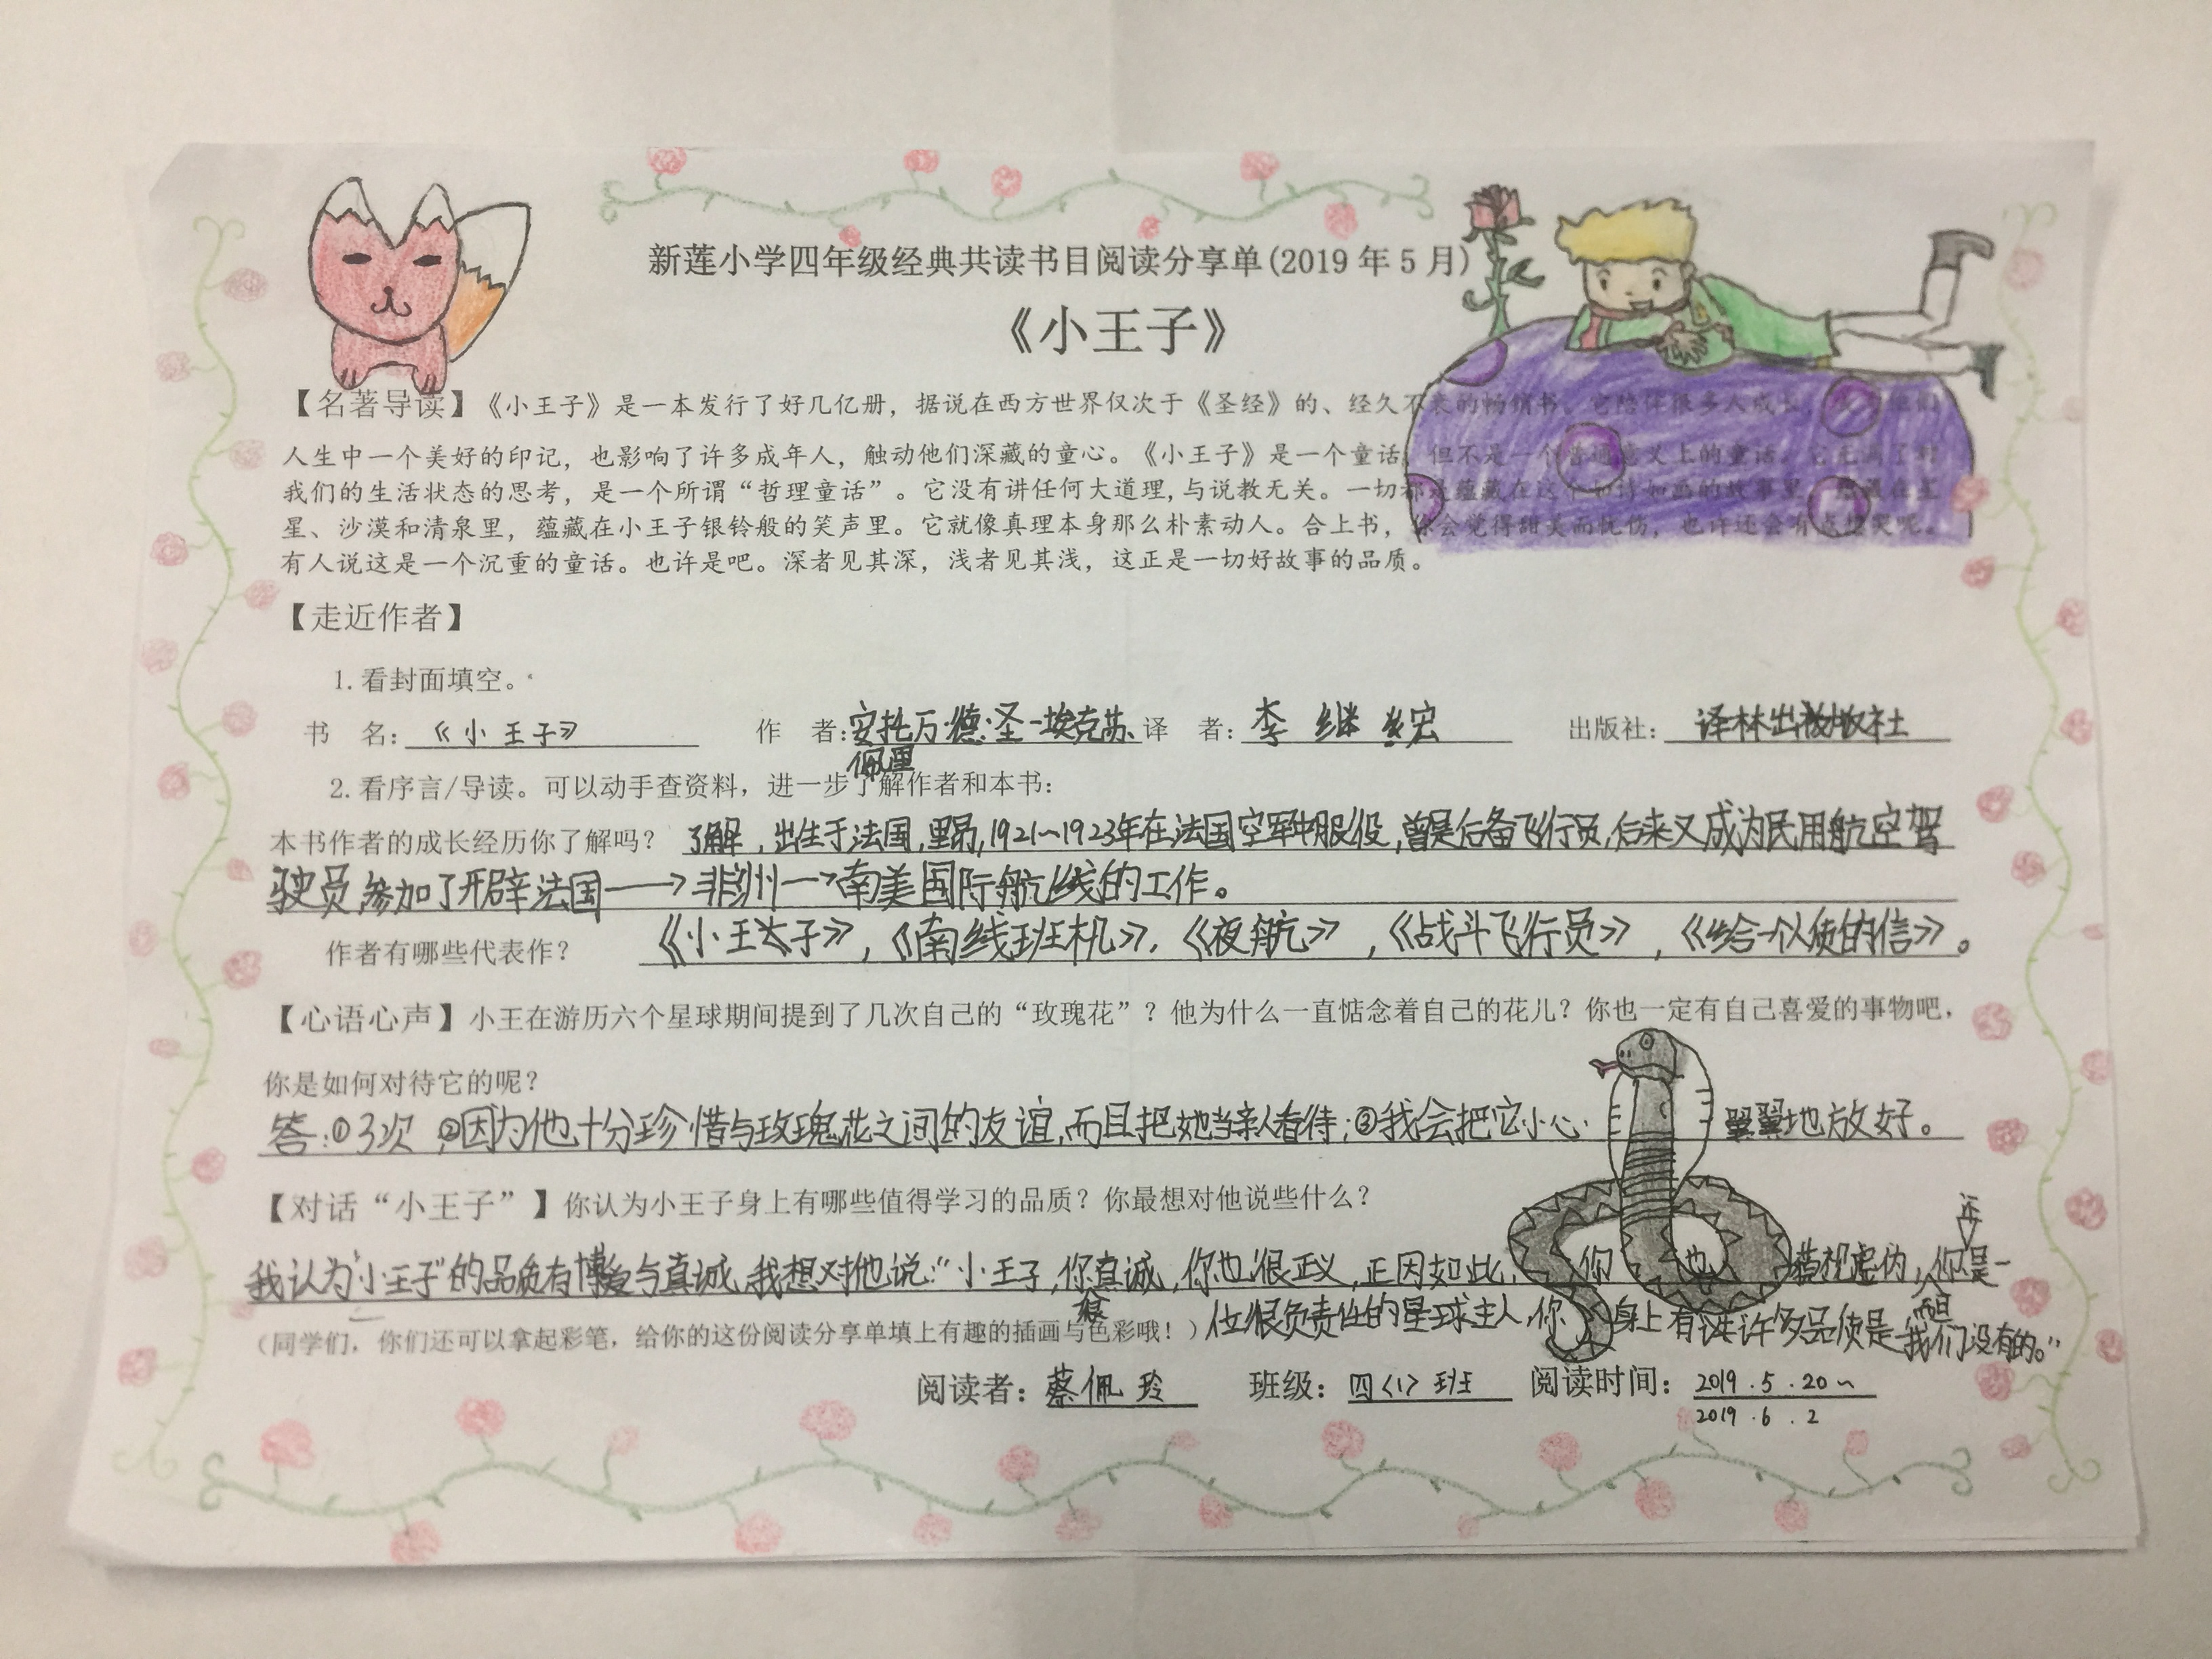 新莲小学四年级经典共读书目阅读分享单(2019年5月)
《小王子》
【名著导读】《小王子》是一本发行了好几亿册，据说在西方世界仅次于《圣经》的、经久不衰的畅销书。它陪伴很多人成长，
人生中一个美好的印记，也影响了许多成年人，触动他们深藏的童心。《小王子》是一个童话，但不是一个普通意义上的童话。它充满了对
我们的生活状态的思考，是一个所谓“哲理童话”。它没有讲任何大道理,与说教无关。一切都是蕴藏在这个如诗如画的故事里，
星、沙漠和清泉里，蕴藏在小王子银铃般的笑声里。它就像真理本身那么朴素动人。合上书，你会觉得甜美而忧伤，也许还会有点想哭呢。
有人说这是一个沉重的童话。也许是吧。深者见其深，浅者见其浅，这正是一切好故事的品质。
【走近作者】
1.看封面填空。
书 名：《小王子》 作 者：安托万·德·圣-埃克苏佩里 译 者：李继宏 出版社：译林出版社
2.看序言/导读。可以动手查资料，进一步了解作者和本书：
本书作者的成长经历你了解吗？ 了解，出生于法国，里昂，1921~1923年在法国空军中服役，曾是后备飞行员，后来又成为民用航空驾
驶员，参加了开辟法国——→非洲—→南美国际航线的工作。
作者有哪些代表作？ 《小王子》，《南线班机》，《夜航》，《战斗飞行员》，《给一个人质的信》。
【心语心声】小王在游历六个星球期间提到了几次自己的“玫瑰花”？他为什么一直惦念着自己的花儿？你也一定有自己喜爱的事物吧，
你是如何对待它的呢？
答：①3次 ②因为他十分珍惜与玫瑰花之间的友谊，而且把她当亲人看待；③我会把它小心翼翼地放好。
【对话“小王子”】你认为小王子身上有哪些值得学习的品质？你最想对他说些什么？
我认为“小王子”的品质有博爱与真诚，我想对他说：“小王子，你很真诚，你也很正义，正因如此，你也藐视虚伪，你还是一
位很负责任的星球主人，你身上有许多品质是我们没有的。”
（同学们，你们还可以拿起彩笔，给你的这份阅读分享单填上有趣的插画与色彩哦！）
阅读者：蔡佩玲 班级：四〈1〉班 阅读时间：2019.5.20~
2019.6.2